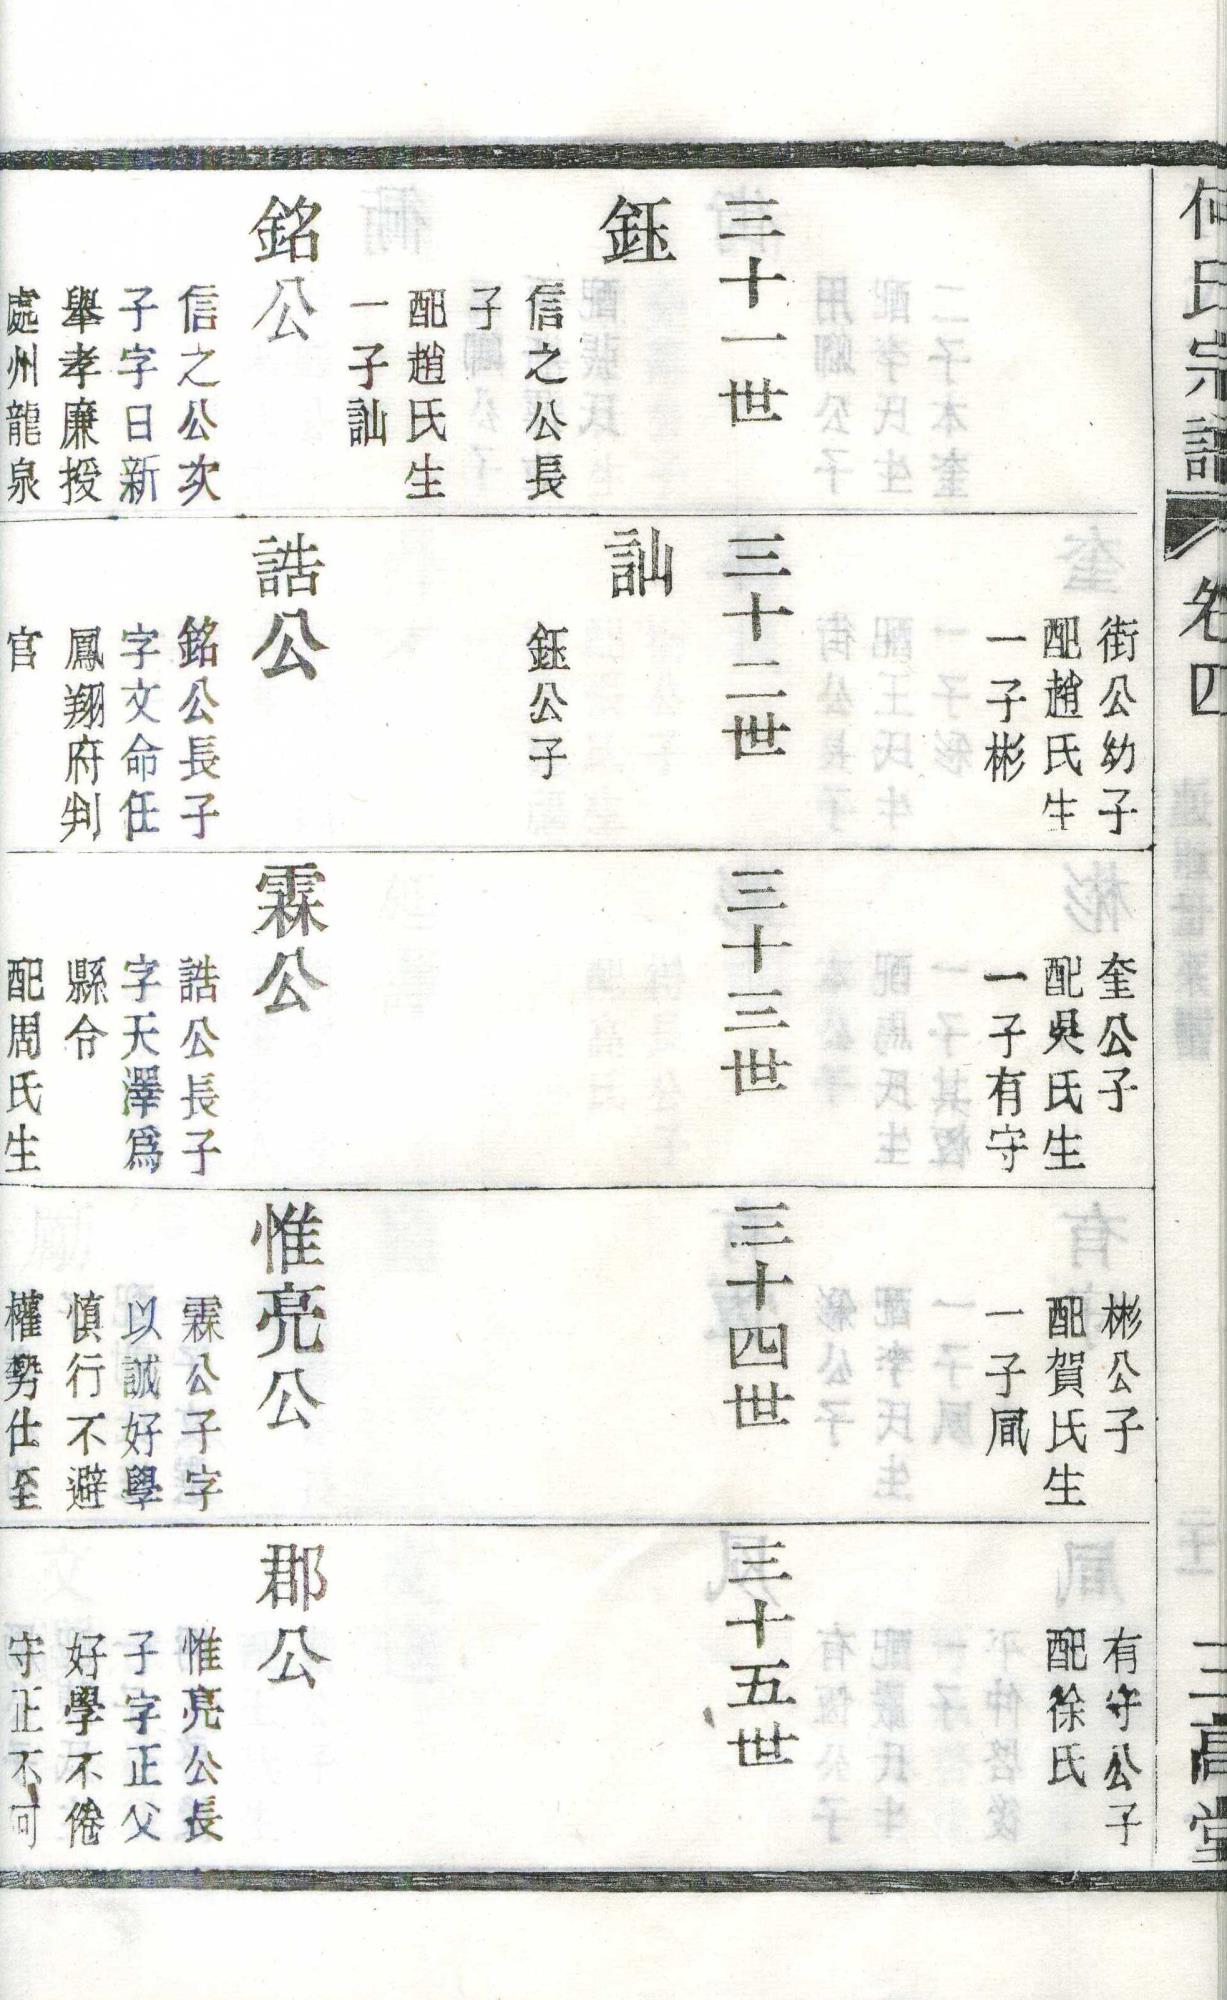 何氏宗譜
卷四
三高堂
街公幼子
配趙氏生
一子彬
奎公子
配吳氏生
一子有守
彬公子
配賀氏生
一子凬
有守公子
配徐氏
三十一世
鈺
信之公長
子
配趙氏生
一子訕
銘公
信之公次
子字日新
舉孝廉授
處州龍泉
三十二世
訕
鈺公子
誥公
銘公長子
字文命任
鳳翔府判
官
三十三世
霖公
誥公長子
字天澤爲
縣令
配周氏生
三十四世
惟亮公
霖公子字
以誠好學
慎行不避
權勢仕至
三十五世
郡公
惟亮公長
子字正父
好學不倦
守正不可